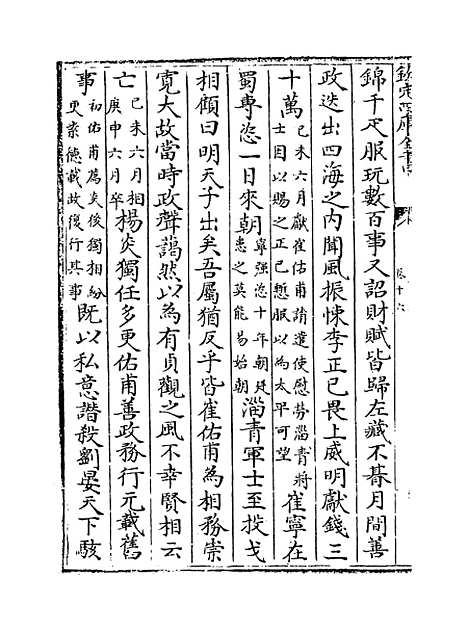 欽定四庫全書
卷十六
錦千疋服玩數百事又詔財賦皆歸左藏不朞月間善
政迭出四海之内聞風振悚李正己畏上威明獻錢三
十萬己未六月獻崔佑甫請遣使慰勞淄青將士因以賜之正己慙服以為太平可望崔寧在
蜀專恣一日來朝寧强恣十年朝廷患之莫能易始朝淄青軍士至投戈
相顧曰明天子出矣吾屬猶反乎皆崔佑甫為相務崇
寛大故當時政聲藹然以為有貞觀之風不幸賢相云
亡己未六月相庚申六月卒楊炎獨任多更佑甫善政務行元載舊
事初佑甫薦炎後獨相紛更素德載故復行其事既以私意譖殺劉晏天下駭